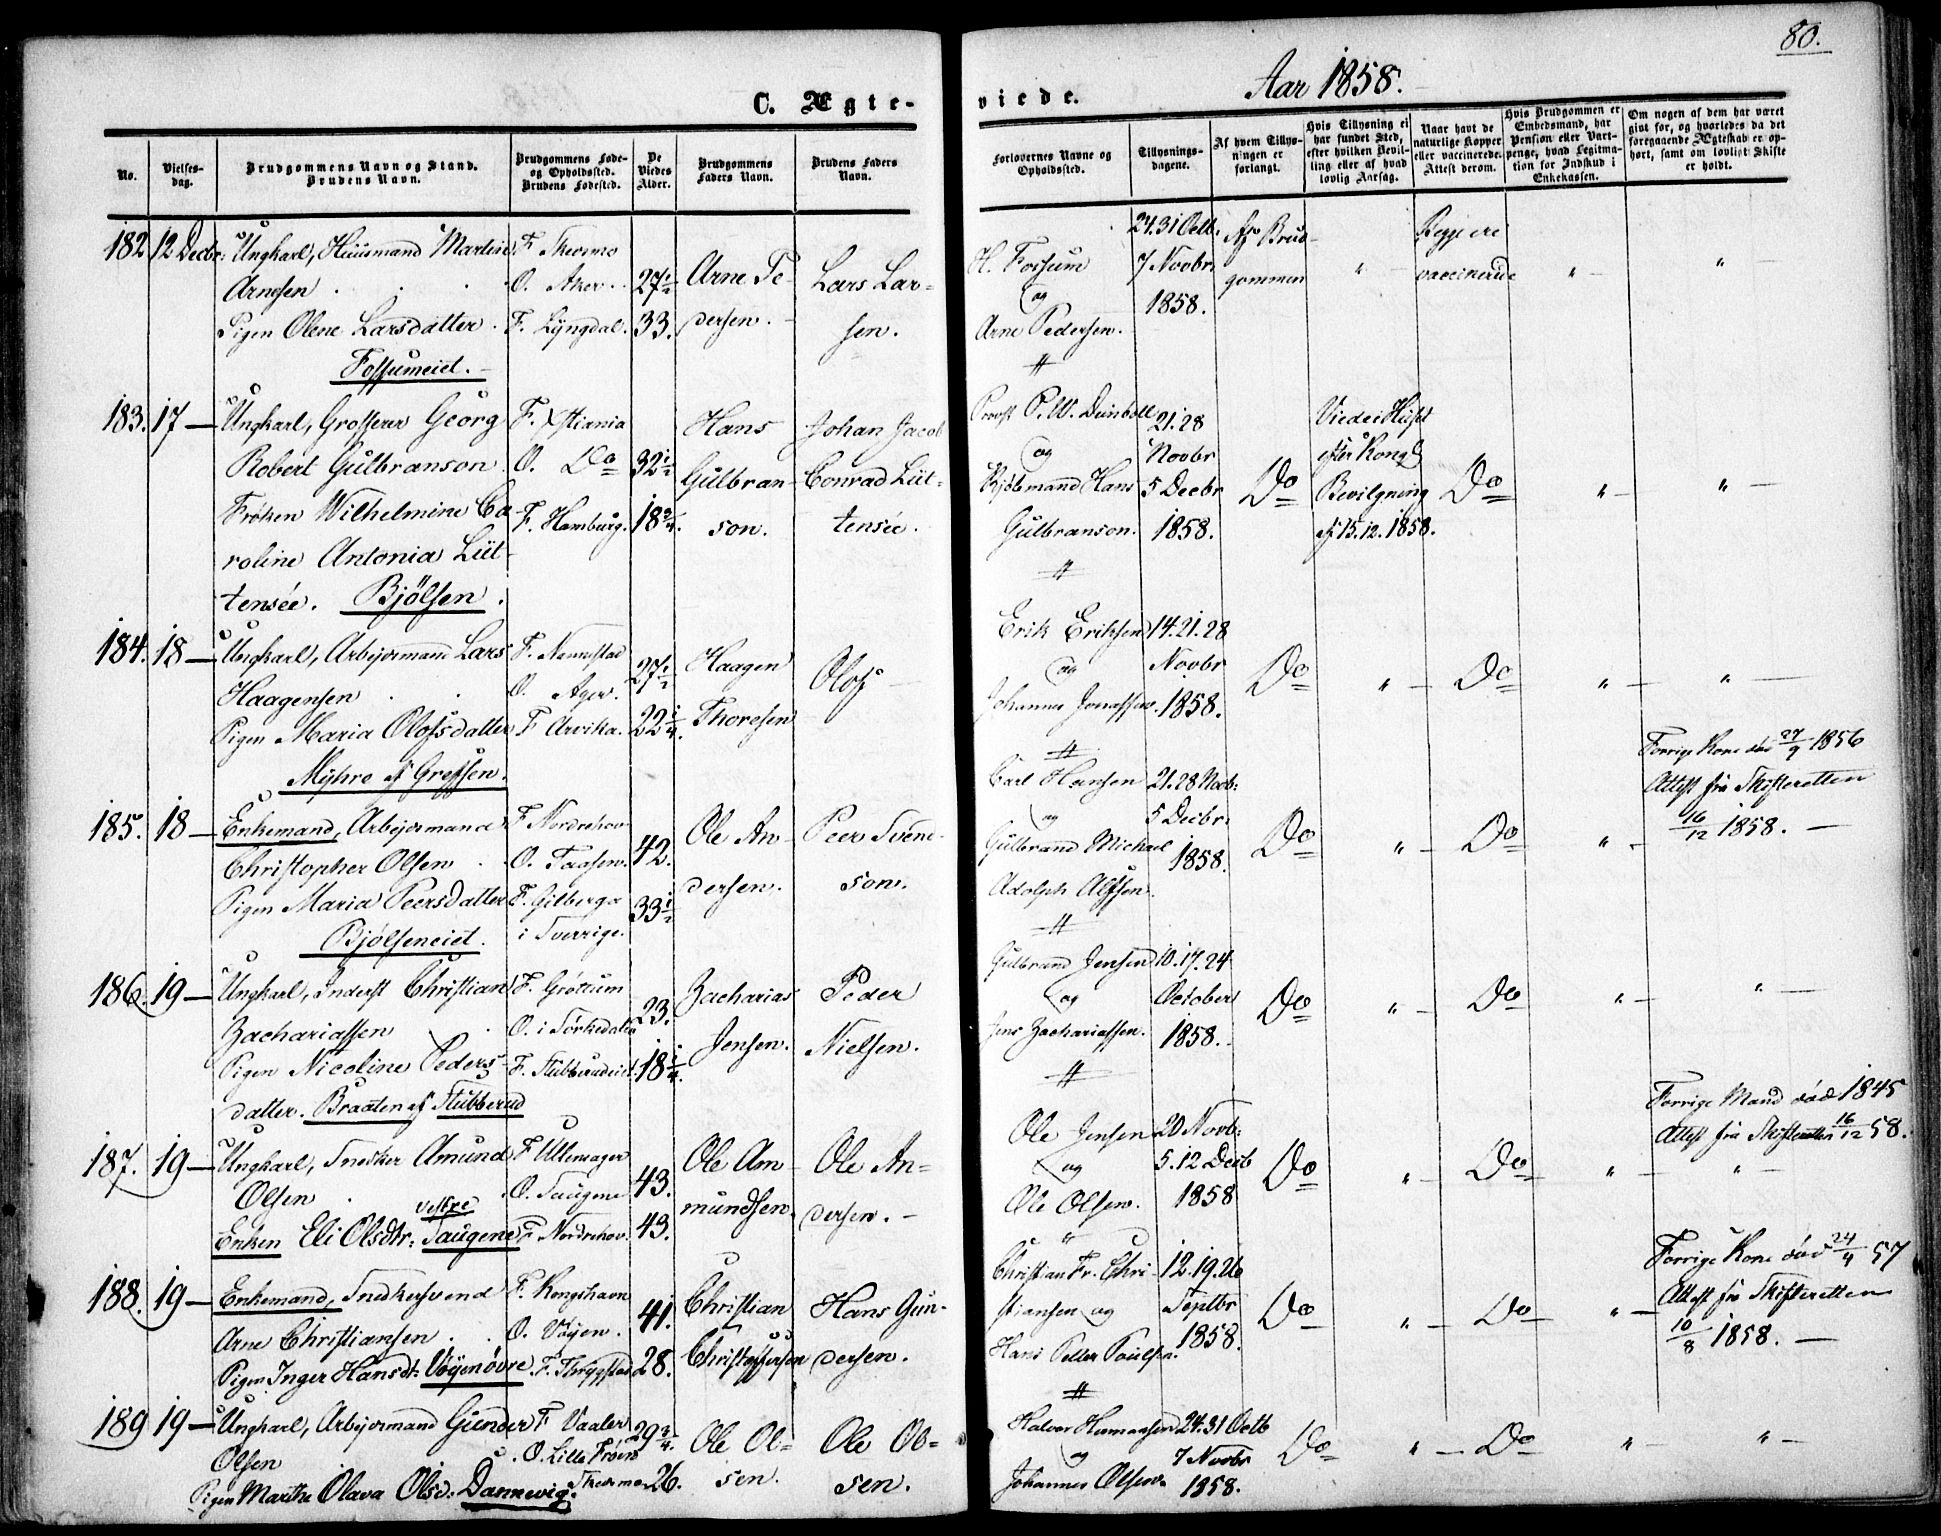 80.
Aar 1858.
C. Ægte-
viede.
No.
Vielses-
dag.
Brudgommens Navn og Stand.
Brudens Navn.
Brudgommens Føde-
og Opholdssted.
Brudens Fødested.
De
Viedes
Alder.
Brudgommens
Faders Navn.
Brudens Faders
Navn.
Forlovernes Navne og
Opholdssted.
Tillysnings-
dagene.
Af hvem Tillys-
ningen er
forlangt.
Hvis Tillysning ei
har fundet Sted,
efter hvilken Bevil-
ling eller af hvad
lovlig Aarsag.
Naar havt de
naturlige Kopper
eller vaccinerede.
Attest derom.
Hvis Brudgommen er
Embedsmand, har
Pension eller Vart-
penge, hvad Legitima-
tion for Indskud i
Enkekassen.
Om nogen af dem har været
gift før, og hvorledes da det
foregaaende Ægteskab er op-
hørt, samt om lovligt Skifte
er holdt.
182 12 Decbr: Ungkarl, Huusmand Martin
Arnesen
Pigen Olene Larsdatter.
Fossumeiet.
F. Thermo
O. Aker.
F. Lyngdal.
27½
33.
Arne Pe-
dersen.
Lars Lar-
sen.
H. Fossum
og
Arne Pedersen.
24.31 Octb.
7 Novbr
1858.
Af Brud-
gommen
"
Begge ere
vaccinerede
"
"
183. 17 — Ungkarl, Grosserer Georg
Robert Gulbranson.
Frøken Wilhelmine Ca-
roline Antonia Lüt-
tensée. Bjölsen.
F. Xstiania
O. Do
F. Hamburg.
32½
18¾.
Hans
Gulbran-
son.
Johan Jacob
Conrad Lüt-
tensée.
Provst P. W. Deinboll
og
Kjöbmand Hans
Gulbranson.
21.28
Novbr
5 Decbr
1858.
Do
Viede i Huset
efter Kongl
Bevilgning
af 15.12.1858.
Do
"
"
184. 18 — Ungkarl, Arbejdsmand Lars
Haagensen
Pigen Maria Olofsdatter
Myhre af Grefsen.
F. Nannestad
O. Ager.
F. Arvika.
27½
22¼.
Haagen
Thoresen
Olof
Erik Eriksen
og
Johannes Jonassen.
14.21.28
Novbr
1858.
Do
"
Do
"
"
185. 18 — Enkemand, Arbejdsmand
Christopher Olsen
Pigen Maria Peersdatter
Bjølseneiet.
F. Nordrehov
O. Taasen.
F. Gilberga
i Sverrige.
42.
33½
Ole An-
dersen.
Peer Svend-
son.
Carl Hansen
og
Gulbrand Michael
Adolph Alfsen.
21.28 Novb:
5 Decbr.
1858.
Do
"
Do
"
Forrige Kone død 27/9 1856
Attest fra Skifteretten
16/12 1858.
186. 19 — Ungkarl, Inderst Christian
Zachariassen
Pigen Nicoline Peders-
datter. Braaten af Stubberud
F. Grøttum
O. i Sørkedalen
F. Stubberudeiet.
23.
18¼.
Zacharias
Jensen.
Peder
Nielsen.
Gulbrand Jensen
og
Jens Zachariassen.
10.17.24
October
1858.
Do
"
Do
"
"
187. 19 — Ungkarl, Snedker Amund
Olsen
Enken Eli Olsdtr: vestre Taugene
F. Ullensager
O. Taugene
F. Nordrehov.
43.
43.
Ole Am-
mundsen.
Ole An-
dersen.
Ole Jensen
og
Ole Olsen.
20 Novb:
5.12 Decb
1858
Do
"
Do
"
Forrige Mand død 1845
Attest fra Skifteretten 16/12 58.
"
188. 19 — Enkemand, Snedkersvend
Arne Christiansen
Pigen Inger Hansdt: Vøyenøvre
F. Kongshavn
O. Vøyen.
F. Thrygstad
41.
28.
Christian
Christoffersen
Hans Gun-
dersen.
Christian Fr. Chri-
stiansen og
Hans Petter Paulsen.
12.19.26
Septbr
1858.
Do
"
Do
"
Forrige Kone død 24/4 57
Attest fra Skifteretten
10/8 1858.
189 19 — Ungkarl, Arbejdsmand Gunder
Olsen
Pigen Marthe Olava Olsd: Dannevig.
F. Vaaler
O. Lille Frøen
Thermo
29¾.
26.
Ole Ol-
sen.
Ole Ol-
sen.
Halvor Hermansen
og
Johannes Olsen.
24.31 Octb
7 Novbr
1858.
Do
"
Do
"
"